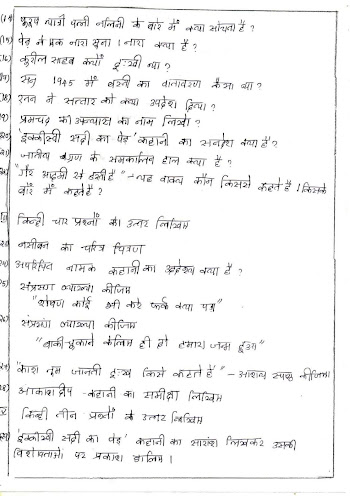 पुरुष यात्री पत्नी नलिनी के बारे में क्या सोचता है ?
(15) पेड़ ने एक नारा सुना । नारा क्या है ?
(16) कुरील साहब क्यों दुःखी था ?
(17) सन् 1945 में बस्ती का वातावरण कैसा था ?
(18) रतन ने सत्कार को क्या उपदेश दिया ?
(19) प्रेमचंद्र की उपन्यास का नाम लिखो ?
(20) 'इक्कीसवीं सदी का पेड़' कहानी का सन्देश क्या है ?
जातीय के समकालीन हाल क्या है ?
"गैर आदमी से डरते हैं" – यह वाक्य कौन किससे कहते है । किसके
बारे में कहते है ?
किन्हीं चार प्रश्नों का उत्तर लिखिए
नसीबन का चरित्र चित्रण
अपरिचित नामक कहानी का उद्देश्य क्या है ?
सप्रसंग व्याख्या कीजिए
"शोषण कोई भी करे फर्क क्या पड़"
सप्रसंग व्याख्या कीजिए
"बाकी चुकाने केलिए ही तो हमारा जन्म हुआ"
"काश तुम जानती दुःख किसे कहते है" – आशय स्पष्ट कीजिए
आकाशदीप कहानी का समीक्षा लिखिए
किन्हीं तीन प्रश्नों के उत्तर लिखिए
'इक्कीसवीं सदी का पेड़' कहानी का सारांश लिखकर उसकी
विशेषताओं पर प्रकाश डालिए ।